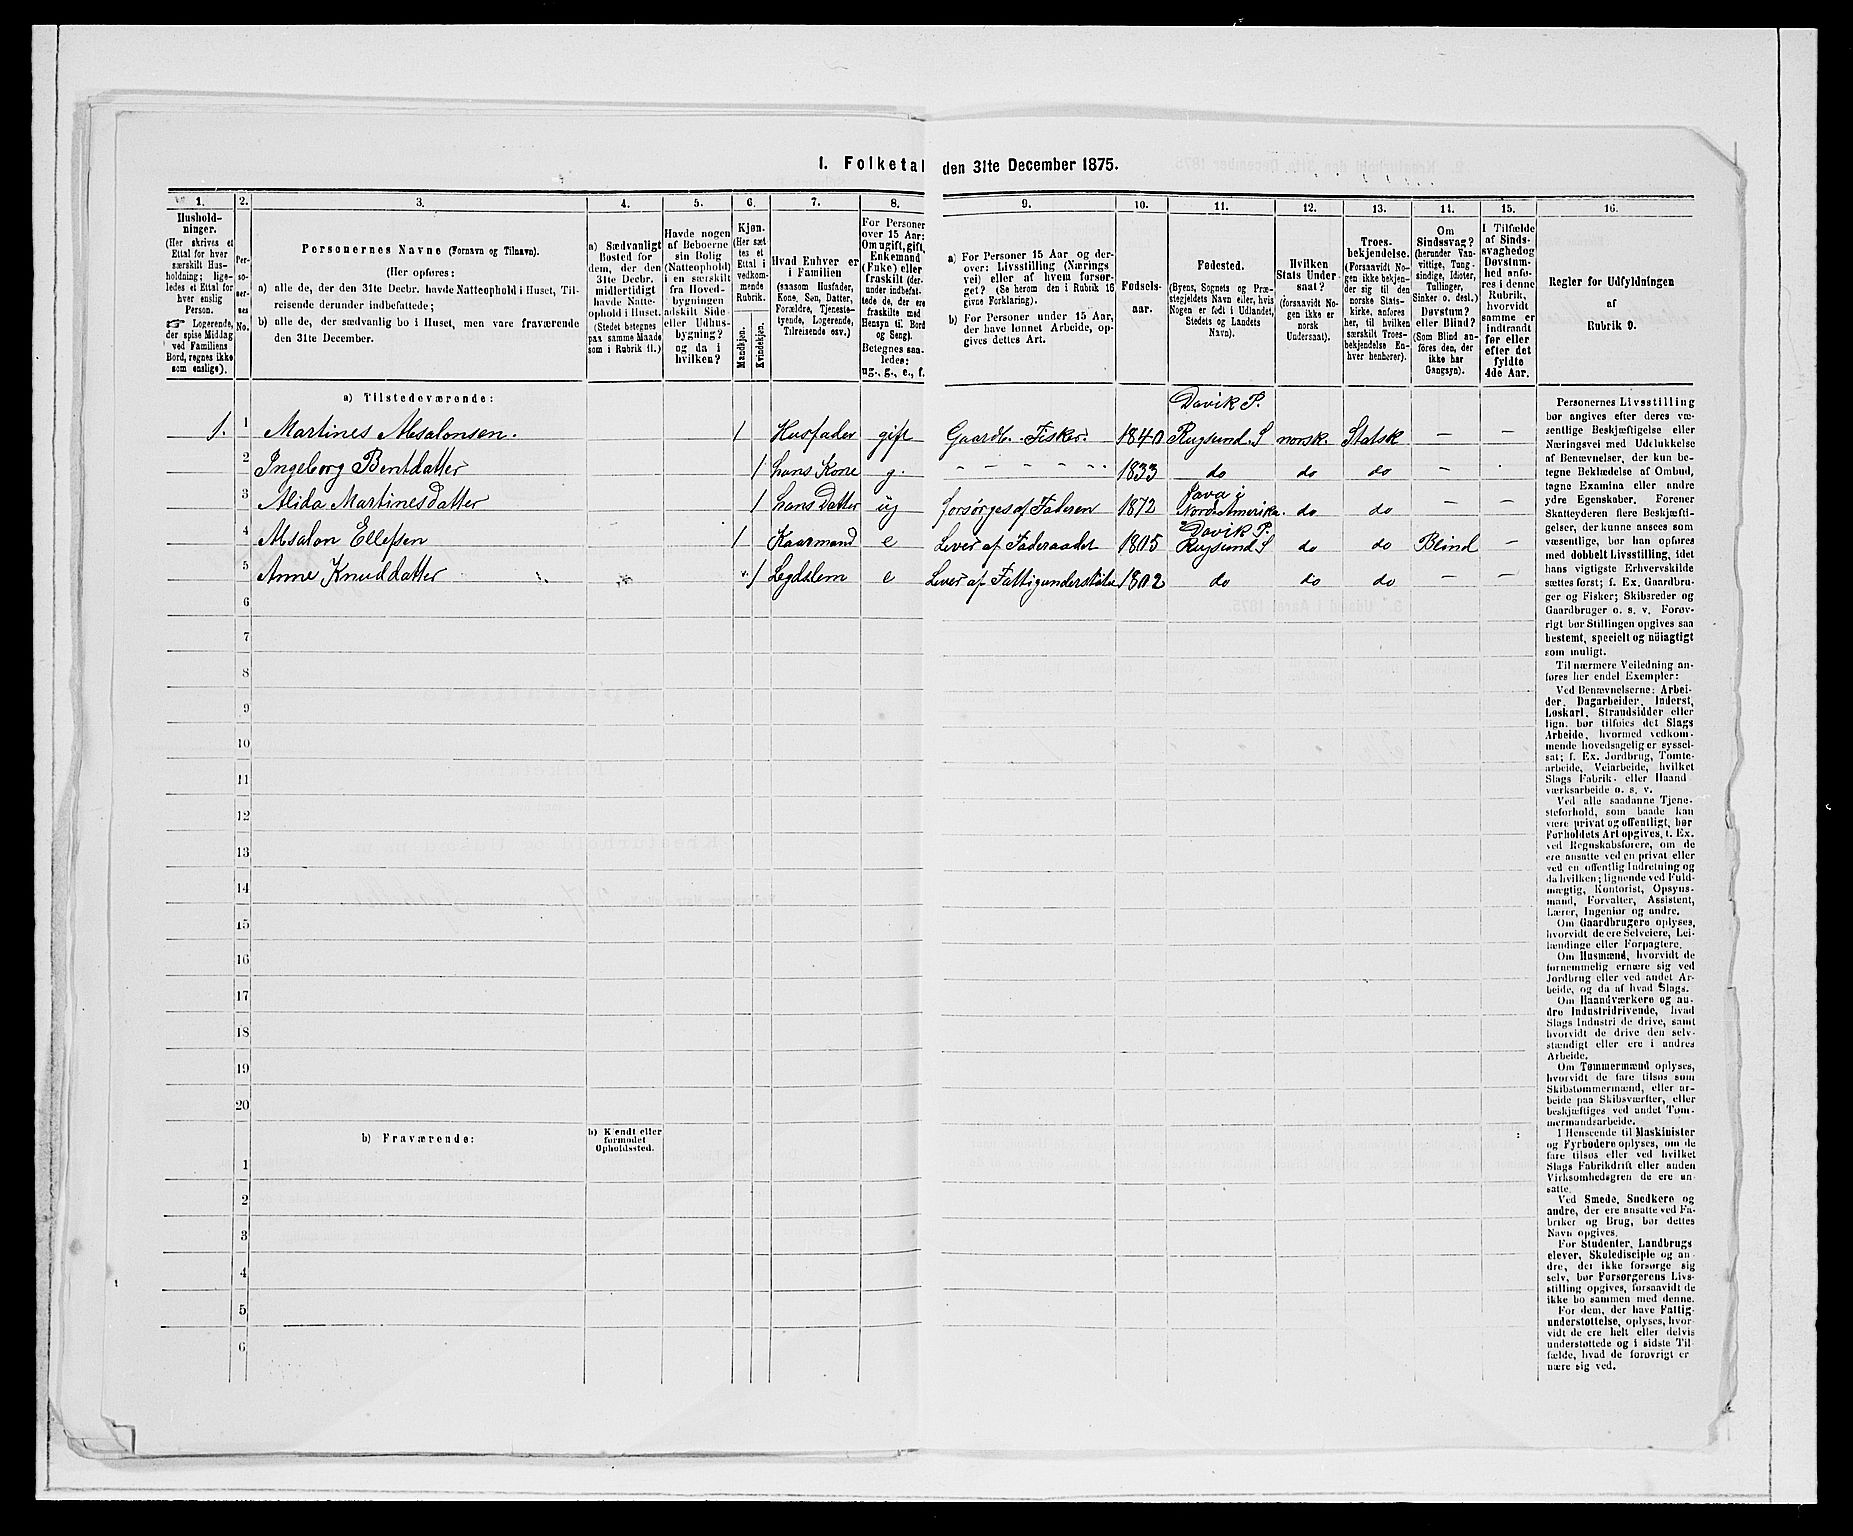 1. Folketal den 31te December 1875.
1. 2. 3. 4. 5. 6. 7. 8. 9. 10. 11. 12. 13. 14. 15. 16.
Hushold-
ninger.
(Her skrives et
Ettal for hver
særskilt Hus-
holdning; lige-
ledes et Ettal for
hver enslig
Person.
☞ Logerende,
der spise Middag
ved Familiens
Bord, regnes ikke
som enslige).
Per-
so-
ner-
nes
No.
Personernes Navne (Fornavn og Tilnavn).
(Her opføres:
a) alle de, der den 31te Decbr. havde Natteophold i Huset, Til-
reisende derunder indbefattede;
b) alle de, der sædvanlig bo i Huset, men vare fraværende
den 31te December.
a) Sædvanligt
Bosted for
dem, der den
31te Decbr.
midlertidigt
havde Natte-
ophold i Huset.
(Stedet betegnes
paa samme Maade
som i Rubrik 11.)
Havde nogen
af Beboerne
sin Bolig
(Natteophold)
i en særskilt
fra Hoved-
bygningen
adskilt Side-
eller Udhus-
bygning?
og da i
hvilken?
Kjøn.
(Her sæt-
tes et
Ettal i
vedkom-
mende
Rubrik.
Mandkjøn.
Kvindekjøn.
Hvad Enhver er
i Familien
(saasom Husfader,
Kone, Søn, Datter,
Forældre, Tjeneste-
tyende, Logerende,
Tilreisende osv.)
For Personer
over 15 Aar:
Om ugift, gift,
Enkemand
(Enke) eller
fraskilt (der-
under indbefat-
tede de, der ere
fraskilte med
Hensyn til Bord
og Seng).
Betegnes saa-
ledes:
ug., g., e., f.
a) For Personer 15 Aar og der-
over: Livsstilling (Nærings
vei) eller af hvem forsør-
get? (Se herom den i Rubrik 16
givne Forklaring).
b) For Personer under 15 Aar,
der have lønnet Arbeide, op-
gives dettes Art.
Fødsels-
aar.
Fødested.
(Byens, Sognets og Præ-
stegjeldets Navn eller, hvis
Nogen er født i Udlandet,
Stedets og Landets
Navn).
Hvilken
Stats Under-
saat?
(forsaavidt No-
gen ikke er
norsk
Undersaat).
Troes-
bekjendelse.
(Forsaavidt No-
gen ikke bekjen-
der sig til den
norske Stats-
kirke, anføres
her, til hvilken
særskilt Troes-
bekjendelse En-
hver henhører).
Om
Sindssvag?
(herunder Van-
vittige, Tung-
sindige, Idioter,
Tullinger,
Sinker o. desl.)
Døvstum?
eller Blind?
(Som Blind an-
føres den, der
ikke har
Gangsyn).
I Tilfælde
af Sinds-
svaghed og
Døvstum-
hed anfø-
res i denne
Rubrik,
hvorvidt
samme er
indtraadt
før eller
efter det
fyldte
4de Aar.
Regler for Udfyldningen
af
Rubrik 9.
a) Tilstedeværende:
1. 1 Martines Absalonsen. 1 Husfader gift Gaardb. Fisker. 1840 Davik P. Rugsund S norsk. Statsk — —
2 Ingeborg Bentdatter 1 hans Kone g. — — — — 1833 do do do — .
3 Alida Martinesdatter 1 hans Datter ug forsørges af Faderen 1872 Java i Nord-Amerika. do do — —
4 Absalon Ellefsen 1 Kaarmand e Lever af Føderaadet 1805 Davik P. Rugsund S do do Blind —
5 Anne Knuddatter 1 Legdslem e Lever af Fattigunderstøtte 1802 do do do — —
6
7
8
9
10
11
12
13
14
15
16
17
18
19
20
b) Fraværende:
b) Kjendt eller
formodet
Opholdssted.
1
2
3
4
5
6
Personernes Livsstilling
bør angives efter deres væ-
sentlige Beskjæftigelse eller
Næringsvei med Udelukkelse
af Benævnelser, der kun be-
tegne Beklædelse af Ombud,
tagne Examina eller andre
ydre Egenskaber. Forener
Skatteyderen flere Beskjæfti-
gelser, der kunne ansees som
væsentlige, bør han opføres
med dobbelt Livsstilling, idet
hans vigtigste Erhvervskilde
sættes først; f. Ex. Gaardbru-
ger og Fisker; Skibsreder og
Gaardbruger o. s. v. Forøv-
rigt bør Stillingen opgives saa
bestemt, specielt og nøiagtigt
som muligt.
Til nærmere Veiledning an-
føres her endel Exempler:
Ved Benævnelserne: Arbei-
der, Dagarbeider, Inderst,
Løskarl, Strandsidder eller
lign. bør tilføies det Slags
Arbeide, hvormed vedkom-
mende hovedsagelig er syssel-
sat; f. Ex. Jordbrug, Tomte-
arbeide, Veiarbeide, hvilket
Slags Fabrik- eller Haand-
værksarbeide o. s. v.
Ved alle saadanne Tjene-
steforhold, som baade kan
være privat og offentligt, bør
Forholdets Art opgives, t. Ex.
ved Regnskabsførere, om de
ere ansatte ved en privat eller
ved en offentlig Indretning og
da hvilken; lignende ved Fuld-
mægtig, Kontorist, Opsyns-
mand, Forvalter, Assistent,
Lærer, Ingeniør og andre.
Om Gaardbrugere oplyses,
hvorvidt de ere Selveiere, Lei-
lændinge eller Forpagtere.
Om Husmænd, hvorvidt de
fornemmelig ernære sig ved
Jordbrug eller ved andet Ar-
beide, og da af hvad Slags.
Om Haandværkere og an-
dre Industridrivende, hvad
Slags Industri de drive, samt
hvorvidt de drive den selv-
stændigt eller ere i andres
Arbeide.
Om Tømmermænd oplyses,
hvorvidt de fare tilsøs som
Skibstømmermænd, eller ar-
beide paa Skibsværfter, eller
beskjæftiges ved andet Tøm-
mermandsarbeide.
I Henseende til Maskinister
og Fyrbødere oplyses, om de
fare tilsøs eller ved hvilket
Slags Fabrikdrift eller anden
Virksomhedsgren de ere an-
satte.
Ved Smede, Snedkere og
andre, der ere ansatte ved Fa-
briker og Brug, bør dettes
Navn opgives.
For Studenter, Landbrugs-
elever, Skoledisciple og an-
dre, der ikke forsørge sig
selv, bør Forsørgerens Livs-
stilling opgives, forsaavidt de
ikke bo sammen med denne.
For dem, der have Fattig-
understøttelse, oplyses, hvor-
vidt de ere helt eller delvis
understøttede og i sidste Til-
fælde, hvad de forøvrigt er-
nære sig ved.